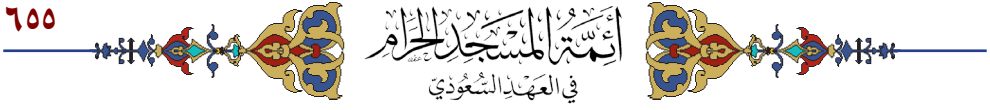 ٦٥٥
أَئِمَّةُ المَسْجِدِ الحَرَامِ
فِي العَهْدِ السُّعُودِيِّ